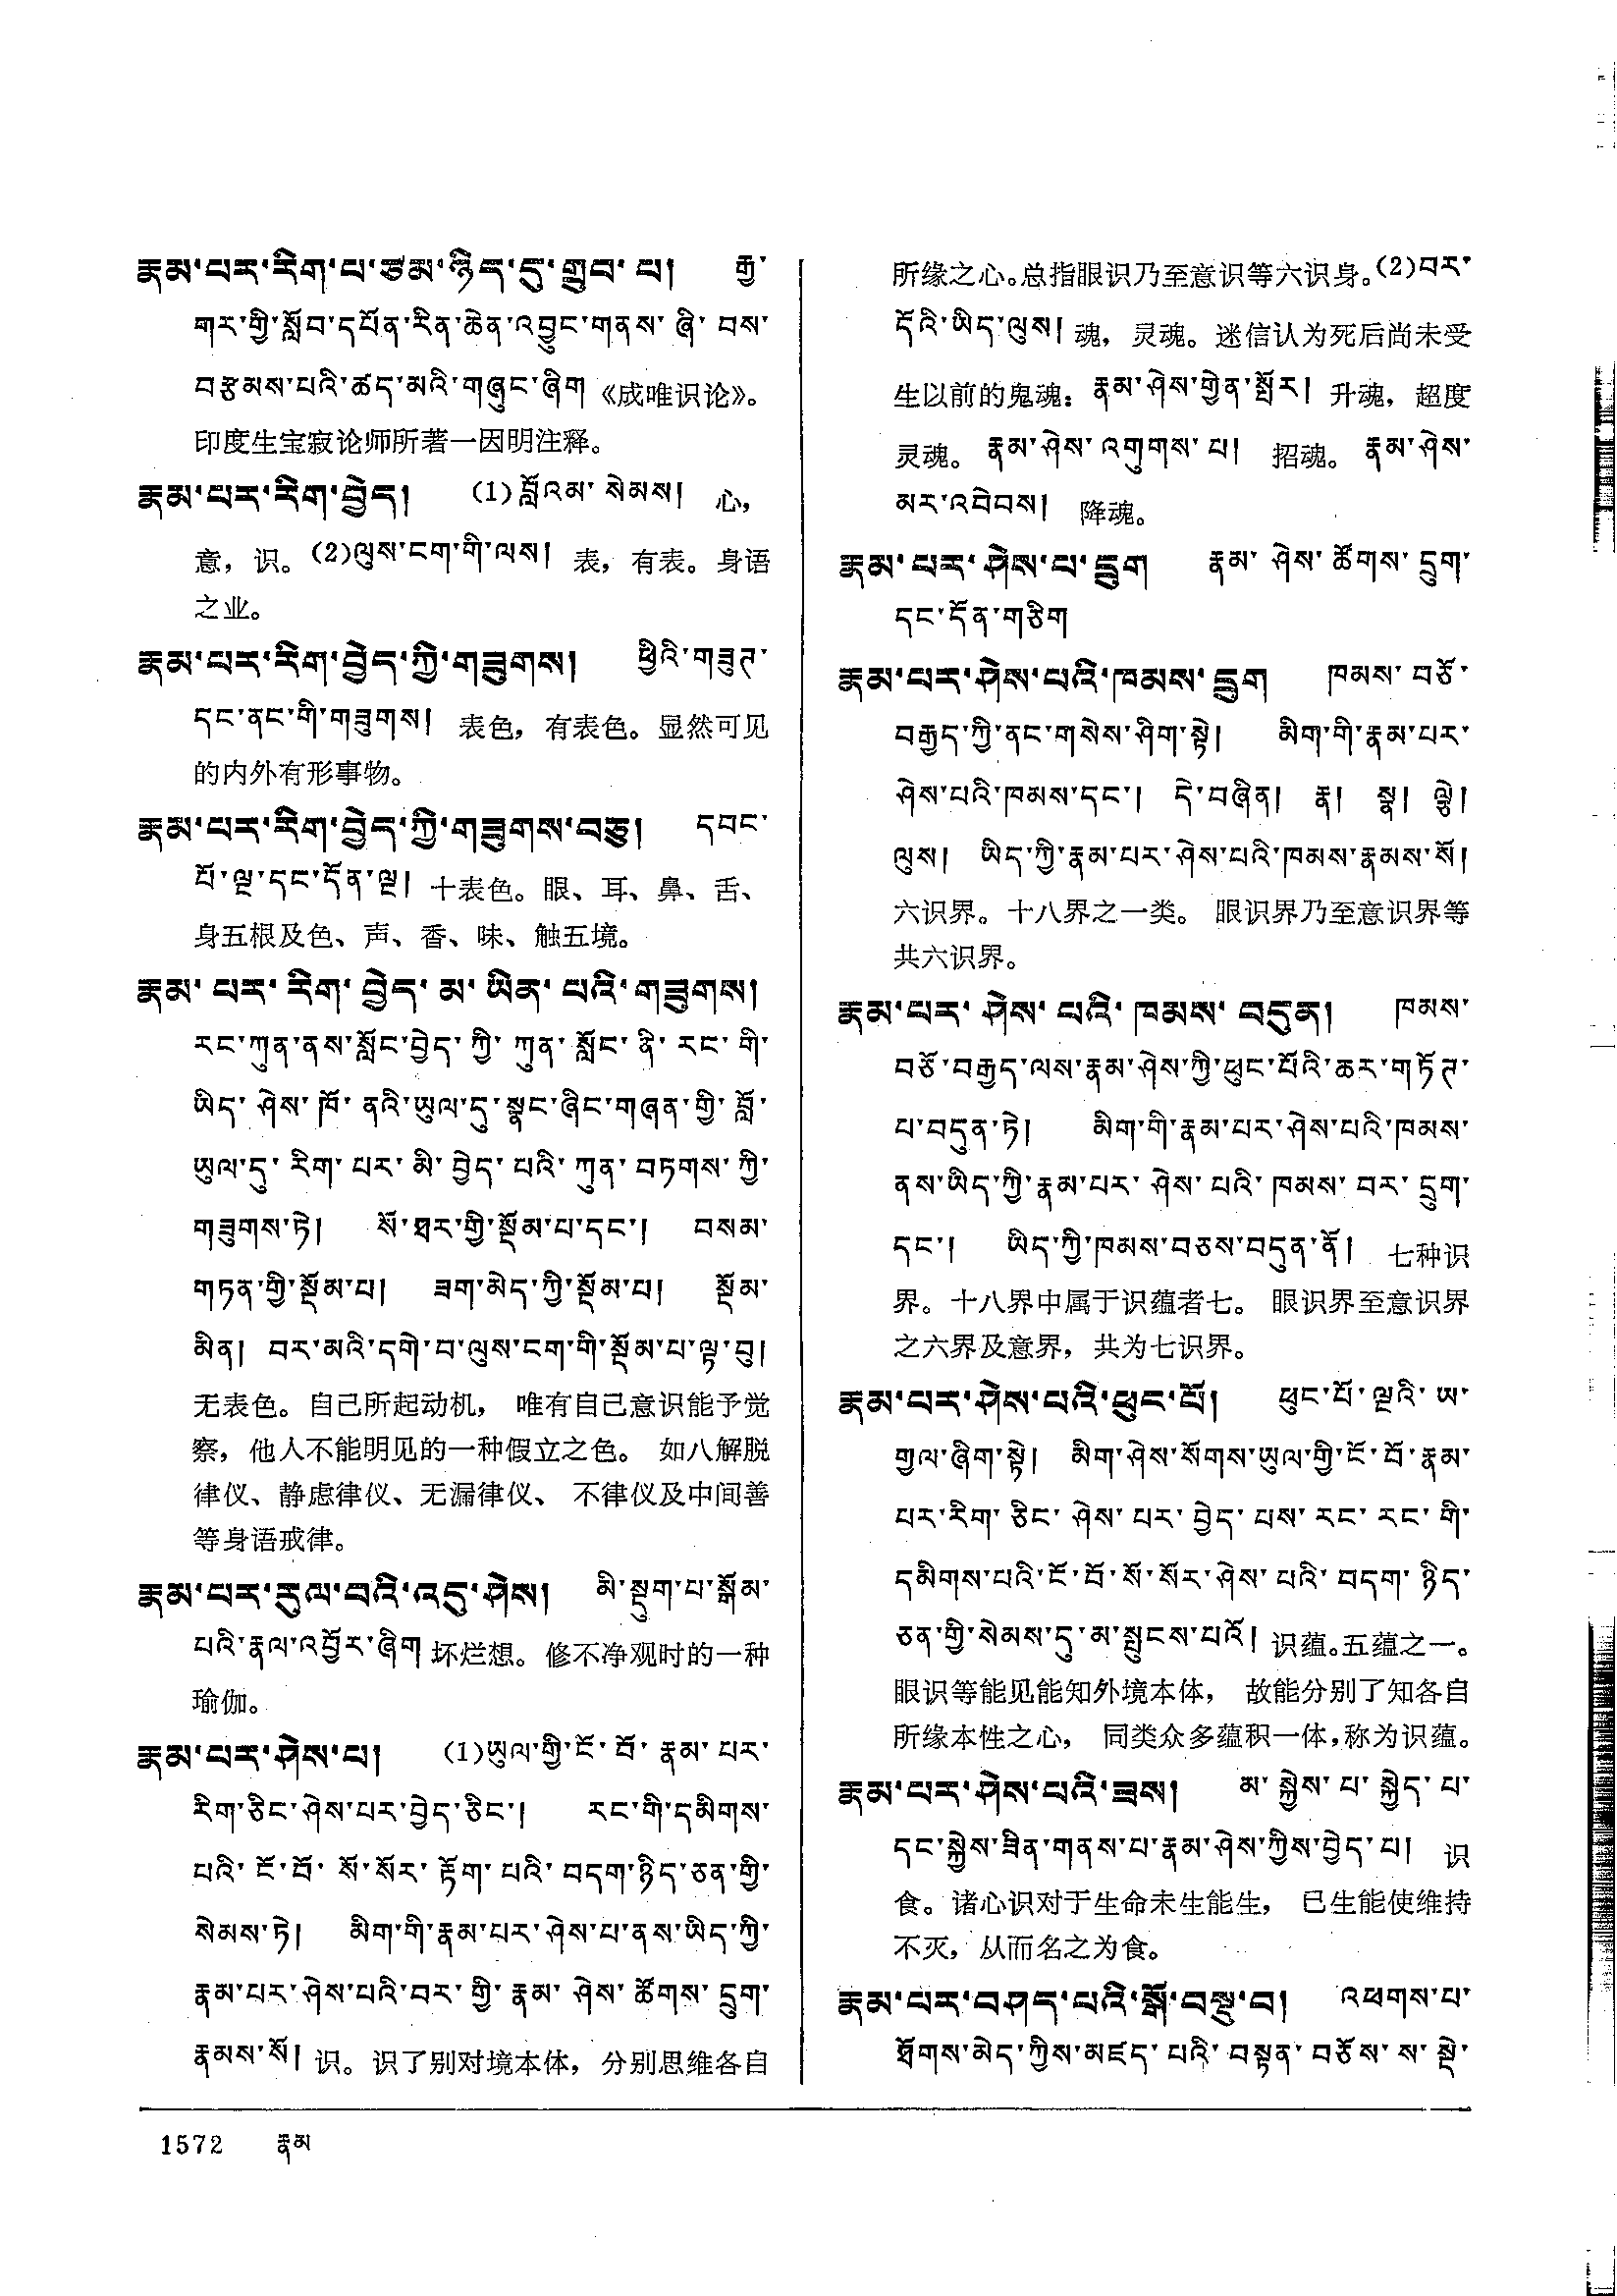 རྣམ་པར་རིག་པ་ཙམ་ཉིད་དུ་གྲུབ་པ། རྒྱ་
གར་གྱི་སློབ་དཔོན་རིན་ཆེན་འབྱུང་གནས་ཞི་བས་
བརྩམས་པའི་ཚད་མའི་གཞུང་ཞིག《成唯识论》。
印度生宝寂论师所著一因明注释。
རྣམ་པར་རིག་བྱེད། (1)བློའམ་སེམས། 心，
意，识。(2)ལུས་ངག་གི་ལས། 表，有表。身语
之业。
རྣམ་པར་རིག་བྱེད་ཀྱི་གཟུགས། ཕྱིའི་གཟུཊ་
དང་ནང་གི་གཟུགས། 表色，有表色。显然可见
的内外有形事物。
རྣམ་པར་རིག་བྱེད་ཀྱི་གཟུགས་བཅུ། དབང་
པོ་ལྔ་དང་དོན་ལྔ། 十表色。眼、耳、鼻、舌、
身五根及色、声、香、味、触五境。
རྣམ་པར་རིག་བྱེད་མ་ཡིན་པའི་གཟུགས།
རང་ཀུན་ནས་སློང་བྱེད་ཀྱི་ཀུན་སློང་ནི་རང་གི་
ཡིད་ཤེས་ཁོ་ནའི་ཡུལ་དུ་སྣང་ཞིང་གཞན་གྱི་བློ་
ཡུལ་དུ་རིག་པར་མི་བྱེད་པའི་ཀུན་བཏགས་ཀྱི་
གཟུགས་ཏེ། སོ་ཐར་གྱི་སྡོམ་པ་དང་། བསམ་
གཏན་གྱི་སྡོམ་པ། ཟག་མེད་ཀྱི་སྡོམ་པ། སྡོམ་
མིན། བར་མའི་དགེ་བ་ལུས་ངག་གི་སྡོམ་པ་ལྟ་བུ།
无表色。自己所起动机， 唯有自己意识能予觉
察，他人不能明见的一种假立之色。 如八解脱
律仪、静虑律仪、无漏律仪、 不律仪及中间善
等身语戒律。
རྣམ་པར་རུལ་བའི་འདུ་ཤེས། མི་སྡུག་པ་སྒོམ་
པའི་རྣལ་འབྱོར་ཞིག 坏烂想。修不净观时的一种
瑜伽。
རྣམ་པར་ཤེས་པ། (1)ཡུལ་གྱི་ངོ་བོ་རྣམ་པར་
རིག་ཅིང་ཤེས་པར་བྱེད་ཅིང་། རང་གི་དམིགས་
པའི་ངོ་བོ་སོ་སོར་རྟོག་པའི་བདག་ཉིད་ཅན་གྱི་
སེམས་ཏེ། མིག་གི་རྣམ་པར་ཤེས་པ་ནས་ཡིད་ཀྱི་
རྣམ་པར་ཤེས་པའི་བར་གྱི་རྣམ་ཤེས་ཚོགས་དྲུག་
རྣམས་སོ། 识。识了别对境本体，分别思维各自
所缘之心。总指眼识乃至意识等六识身。(2)བར་
དོའི་ཡིད་ལུས། 魂，灵魂。迷信认为死后尚未受
生以前的鬼魂：རྣམ་ཤེས་གྱེན་སྤོར། 升魂，超度
灵魂。 རྣམ་ཤེས་འགུགས་པ། 招魂。 རྣམ་ཤེས་
མར་འབེབས། 降魂。
རྣམ་པར་ཤེས་པ་དྲུག རྣམ་ཤེས་ཚོགས་དྲུག་
དང་དོན་གཅིག
རྣམ་པར་ཤེས་པའི་ཁམས་དྲུག ཁམས་བཅོ་
བརྒྱད་ཀྱི་ནང་གསེས་ཤིག་སྟེ། མིག་གི་རྣམ་པར་
ཤེས་པའི་ཁམས་དང་། དེ་བཞིན། རྣ། སྣ། ལྕེ།
ལུས། ཡིད་ཀྱི་རྣམ་པར་ཤེས་པའི་ཁམས་རྣམས་སོ།
六识界。十八界之一类。 眼识界乃至意识界等
共六识界。
རྣམ་པར་ཤེས་པའི་ཁམས་བདུན། ཁམས་
བཅོ་བརྒྱད་ལས་རྣམ་ཤེས་ཀྱི་ཕུང་པོའི་ཆར་གཏོཊ་
པ་བདུན་ཏེ། མིག་གི་རྣམ་པར་ཤེས་པའི་ཁམས་
ནས་ཡིད་ཀྱི་རྣམ་པར་ཤེས་པའི་ཁམས་བར་དྲུག་
དང་། ཡིད་ཀྱི་ཁམས་བཅས་བདུན་ནོ། 七种识
界。十八界中属于识蕴者七。 眼识界至意识界
之六界及意界，共为七识界。
རྣམ་པར་ཤེས་པའི་ཕུང་པོ། ཕུང་པོ་ལྔའི་ཨ་
གྱལ་ཞིག་སྟེ། མིག་ཤེས་སོགས་ཡུལ་གྱི་ངོ་བོ་རྣམ་
པར་རིག་ཅིང་ཤེས་པར་བྱེད་པས་རང་རང་གི་
དམིགས་པའི་ངོ་བོ་སོ་སོར་ཤེས་པའི་བདག་ཉིད་
ཅན་གྱི་སེམས་དུ་མ་སྤུངས་པའོ། 识蕴。五蕴之一。
眼识等能见能知外境本体， 故能分别了知各自
所缘本性之心， 同类众多蕴积一体，称为识蕴。
རྣམ་པར་ཤེས་པའི་ཟས། མ་སྐྱེས་པ་སྐྱེད་པ་
དང་སྐྱེས་ཟིན་གནས་པ་རྣམ་ཤེས་ཀྱིས་བྱེད་པ། 识
食。诸心识对于生命未生能生， 已生能使维持
不灭，从而名之为食。
རྣམ་པར་བཤད་པའི་སྒོ་བསྡུ་བ། འཕགས་པ་
ཐོགས་མེད་ཀྱིས་མཛད་པའི་བསྟན་བཅོས་ས་སྡེ་
1572 རྣམ